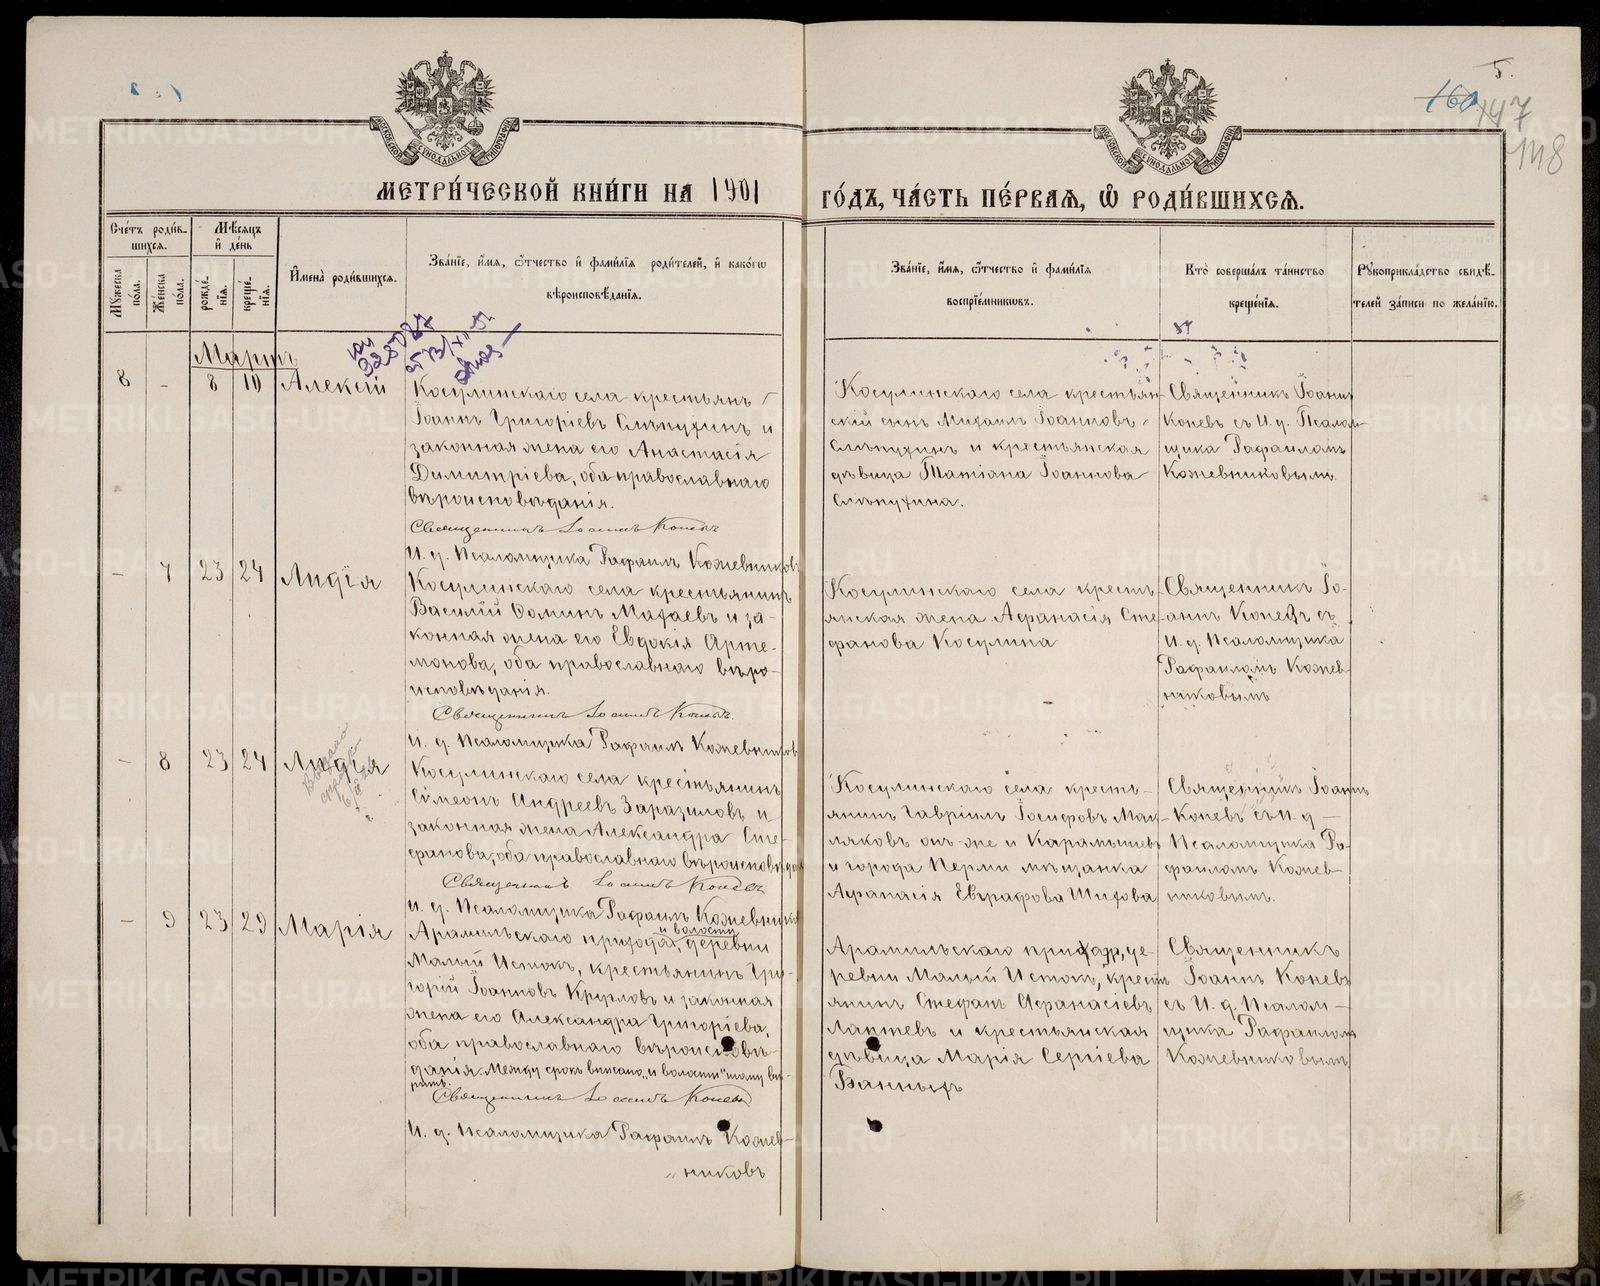 5.
160
147
148
МЕТРИ́ЧЕСКОЙ КНИ́ГИ НА 1901 ГО́ДЪ, ЧА́СТЬ ПЕ́РВАѦ, Ѡ҆ РОДИ́ВШИХСѦ.
Сче́тъ роди́в-
шихся.
Мѣ́сяцъ
и҆ де́нь
Мꙋ́жеска
по́ла.
Же́нска
по́ла.
рожде́-
нїя.
креще́-
нїя.
И҆мена̀ роди́вшихся.
Зва́нїе, и҆́мя, ѻ҆́тчество и҆ фами́лїя роди́телей, и҆ како́гѡ
вѣроисповѣ́данїя.
Зва́нїе, и҆́мя, ѻ҆́тчество и҆ фами́лїя
воспрїе́мниковъ.
Кто̀ соверша́лъ та́инство
креще́нїя.
Рꙋкоприкла́дство свидѣ́-
телей за́писи по жела́нїю.
Мартъ
8 - 8 10 Алексій
Косулинскаго села крестьянъ
Іоаннъ Григоріевъ Слѣпухинъ и
законная жена его Анастасія
Димитріева, оба православнаго
вѣроисповѣданія.
Священникъ Іоаннъ Коневъ
И. д. Псаломщика Рафаилъ Кожевниковъ
Косулинскаго села крестьян-
скій сынъ Михаилъ Іоанновъ
Слѣпухинъ и крестьянская
дѣвица Татіана Іоаннова
Слѣпухина.
Священникъ Іоаннъ
Коневъ съ И. д. Псалом-
щика Рафаиломъ
Кожевниковымъ
- 7 23 24 Лидія
Косулинскаго села крестьянинъ
Василій Ѳоминъ Махаевъ и за-
конная жена его Евдокія Арте-
монова, оба православнаго вѣро-
исповѣданія.
Священникъ Іоаннъ Коневъ.
И. д. Псаломщика Рафаилъ Кожевниковъ
Косулинскаго села крест-
янская жена Афанасія Сте-
фанова Косулина
Священникъ Іо-
аннъ Коневъ съ
И. д. Псаломщика
Рафаиломъ Кожев-
никовымъ
- 8 23 24 Лидія
Косулинскаго села крестьянинъ
Симеонъ Андреевъ Заразиловъ и
законная жена Александра Сте-
фанова, оба православнаго вѣроисповѣдан
Священникъ Іоаннъ Коневъ
И. д. Псаломщика Рафаилъ Кожевников
Косулинскаго села кресть-
янинъ Гавріилъ Іосифовъ Мак-
ляковъ онъ-же и Карамышевъ
и города Перми мѣщанка
Афанасія Евграфова Шихова
Священникъ Іоаннъ
Коневъ съ И. д -
Псаломщика Ра-
фаиломъ Кожев-
никовымъ.
- 9 23 29 Марія
и волости
Арамильскаго прихода, деревни
Малый Истокъ, крестьянинъ Гри-
горій Іоанновъ Кругловъ и законная
жена его Александра Григоріева,
оба православнаго вѣроисповѣ-
данія. Между срокъ вписано „и волости" тому вѣ-
рить.
Священникъ Іоаннъ Коневъ
И. д. Псаломщика Рафаилъ Кожев-
никовъ
Арамильскаго приход, де-
ревни Малый Истокъ, крест-
янинъ Стефанъ Афанасіевъ
Лаптевъ и крестьянская
дѣвица Марія Сергіева
Банныхъ
Священникъ
Іоаннъ Коневъ
съ И. д. Псалом-
щика Рафаилом
Кожевниковымъ